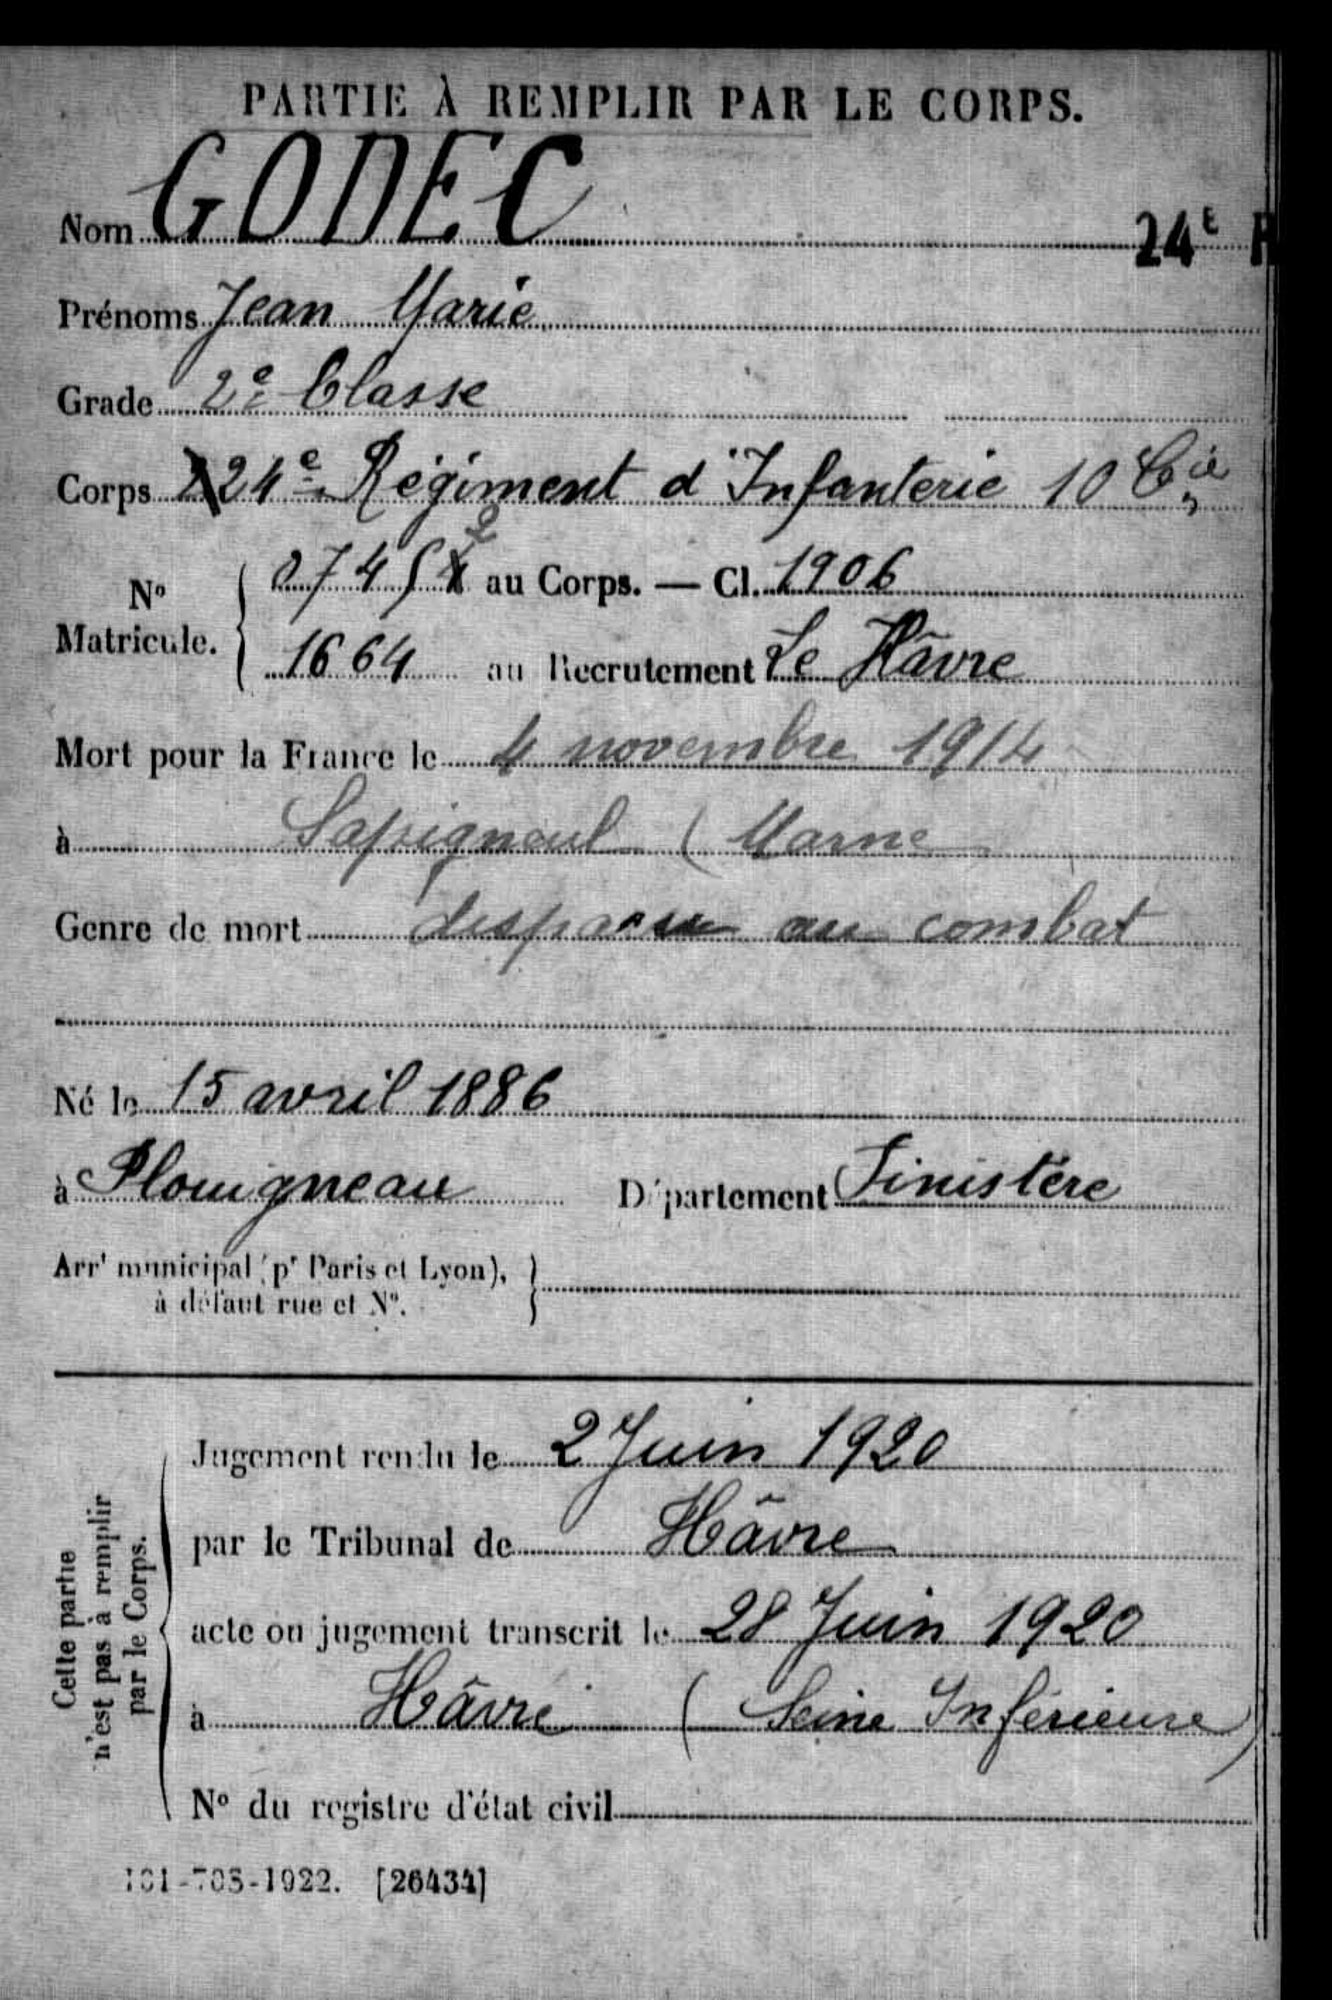 PARTIE À REMPLIR PAR LE CORPS.
Nom GODEC
24E R
Prénoms Jean Marie
Grade 2e Classe
Corps 24e Régiment d'Infanterie 10 Cie
No Matricule. { au Corps. — Cl. 1906
1664 au Recrutement Le Hâvre
Mort pour la France le 4 novembre 1914
à Sapigneul (Marne
Genre de mort disparu au combat
Né le 15 avril 1886
à Plouigneau Département Finistère
Arrt municipal (pr Paris et Lyon), }
à défaut rue et No.
Cette partie
n'est pas à remplir
par le Corps.
Jugement rendu le 2 Juin 1920
par le Tribunal de Hâvre
acte ou jugement transcrit le 28 Juin 1920
à Hâvre (Seine Inférieure)
No du registre d'état civil
101-703-1922. [26434]